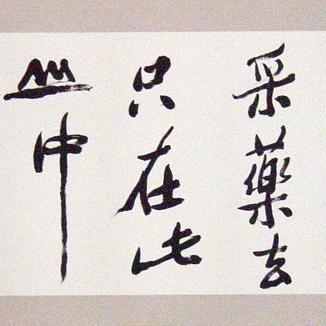 采藥去
只在此
山中